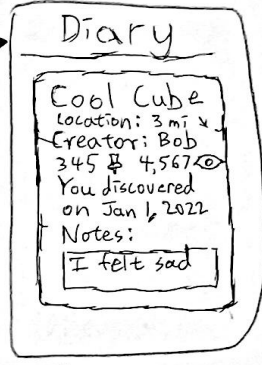 Diary
Cool Cube
Location: 3 mi
Creator: Bob
345 4,567
You discovered
on Jan 1, 2022
Notes:
I felt sad